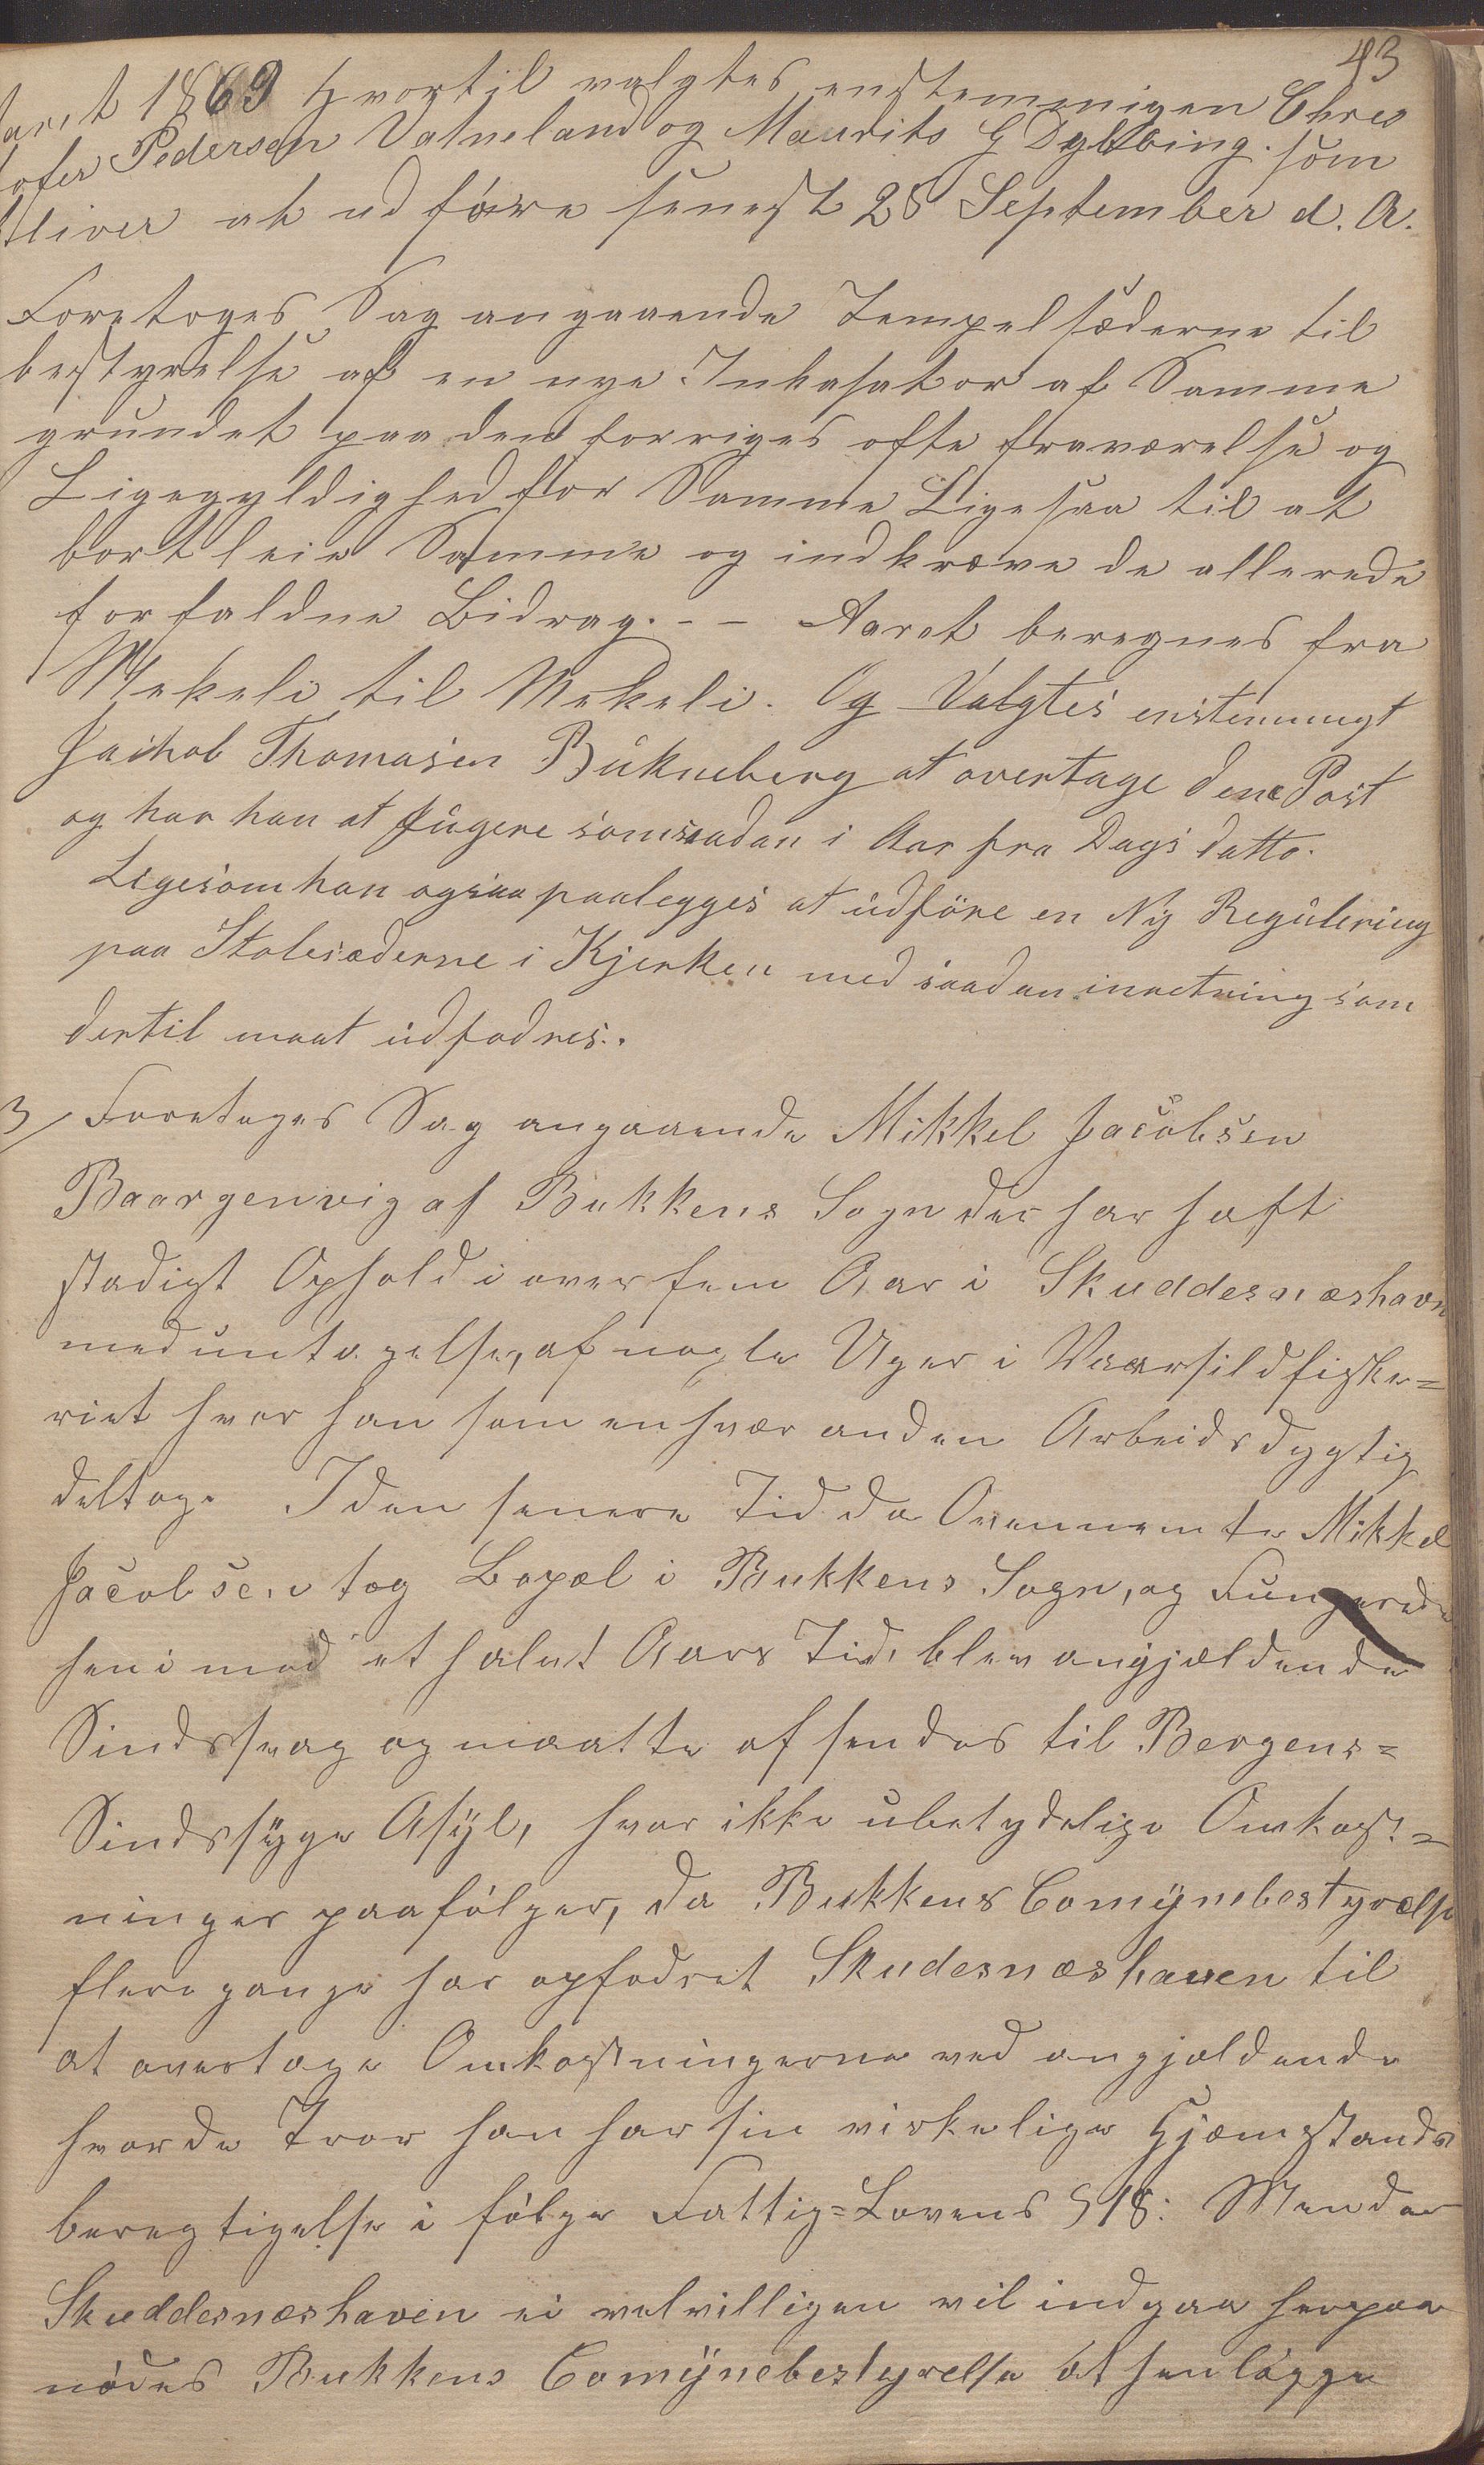 43
aaret 1869 Hvortil valgtes enstemmigen Chris
tofer Pedersen Vatneland og Maurits G Dybbing. som
bliver at udføre senest 28 September d. A.
Foretoges Sag angaaende Tempelsæderne til
bestyrelse af en nye Inkasator af Samme
grundet paa den forriges ofte fraværelse og
Ligegyldighed for Samme Ligesaa til at
bortleie Samme og indkræve de allerede
forfaldne Bidrag. - - Aaret beregnes fra
Mekeli til Mekeli. Og Valgtes enstemmigt
Jaikob Thomasen Bukneberg at overtage dene Post
og har han at fugere somsaadan i Aar fra Dags datto.
Ligesom han ogsaa paalegges at udføre en Ny Regulering
paa Stolesæderne i Kjerken med saadan inretning som
dertil maat udfodres..
3/ Foretoges Sag angaaende Mikkel Jacobsen
Baargenvig af Bukkens Sogn der har haft
stadigt Ophold i over fem Aar i Skuddesnæshavn
med untagelse, af nogle Uger i Vaarsildfiske=
riet hvor han som enhvær anden Arbeidsdygtig
deltog. I den senere Tid da Ovennemte Mikkel
Jacobsen tog Bopæl i Bukkens Sogn, og Fungerede
henimod et halvt Aars Tid, blev angjældende
Sindssvag og maatte afsendes til Bergens=
Sindssyge Asyl, hvor ikke ubetydelige Omkost=
ninger paafølger, da Bukkens Comynebestyrelse
flere gange har opfodret Skudesnæshaven til
at overtage Omkostningerne ved angjældende
hvor de Tror han har sin virkelige Hjemstands
beregtigelse i følge Fattig=Lovens § 18: Men da
Skuddesnæshaven ei velvilligen vil indgaa herpaa
nødes Bukkens Comynebestyrelse at henlægge